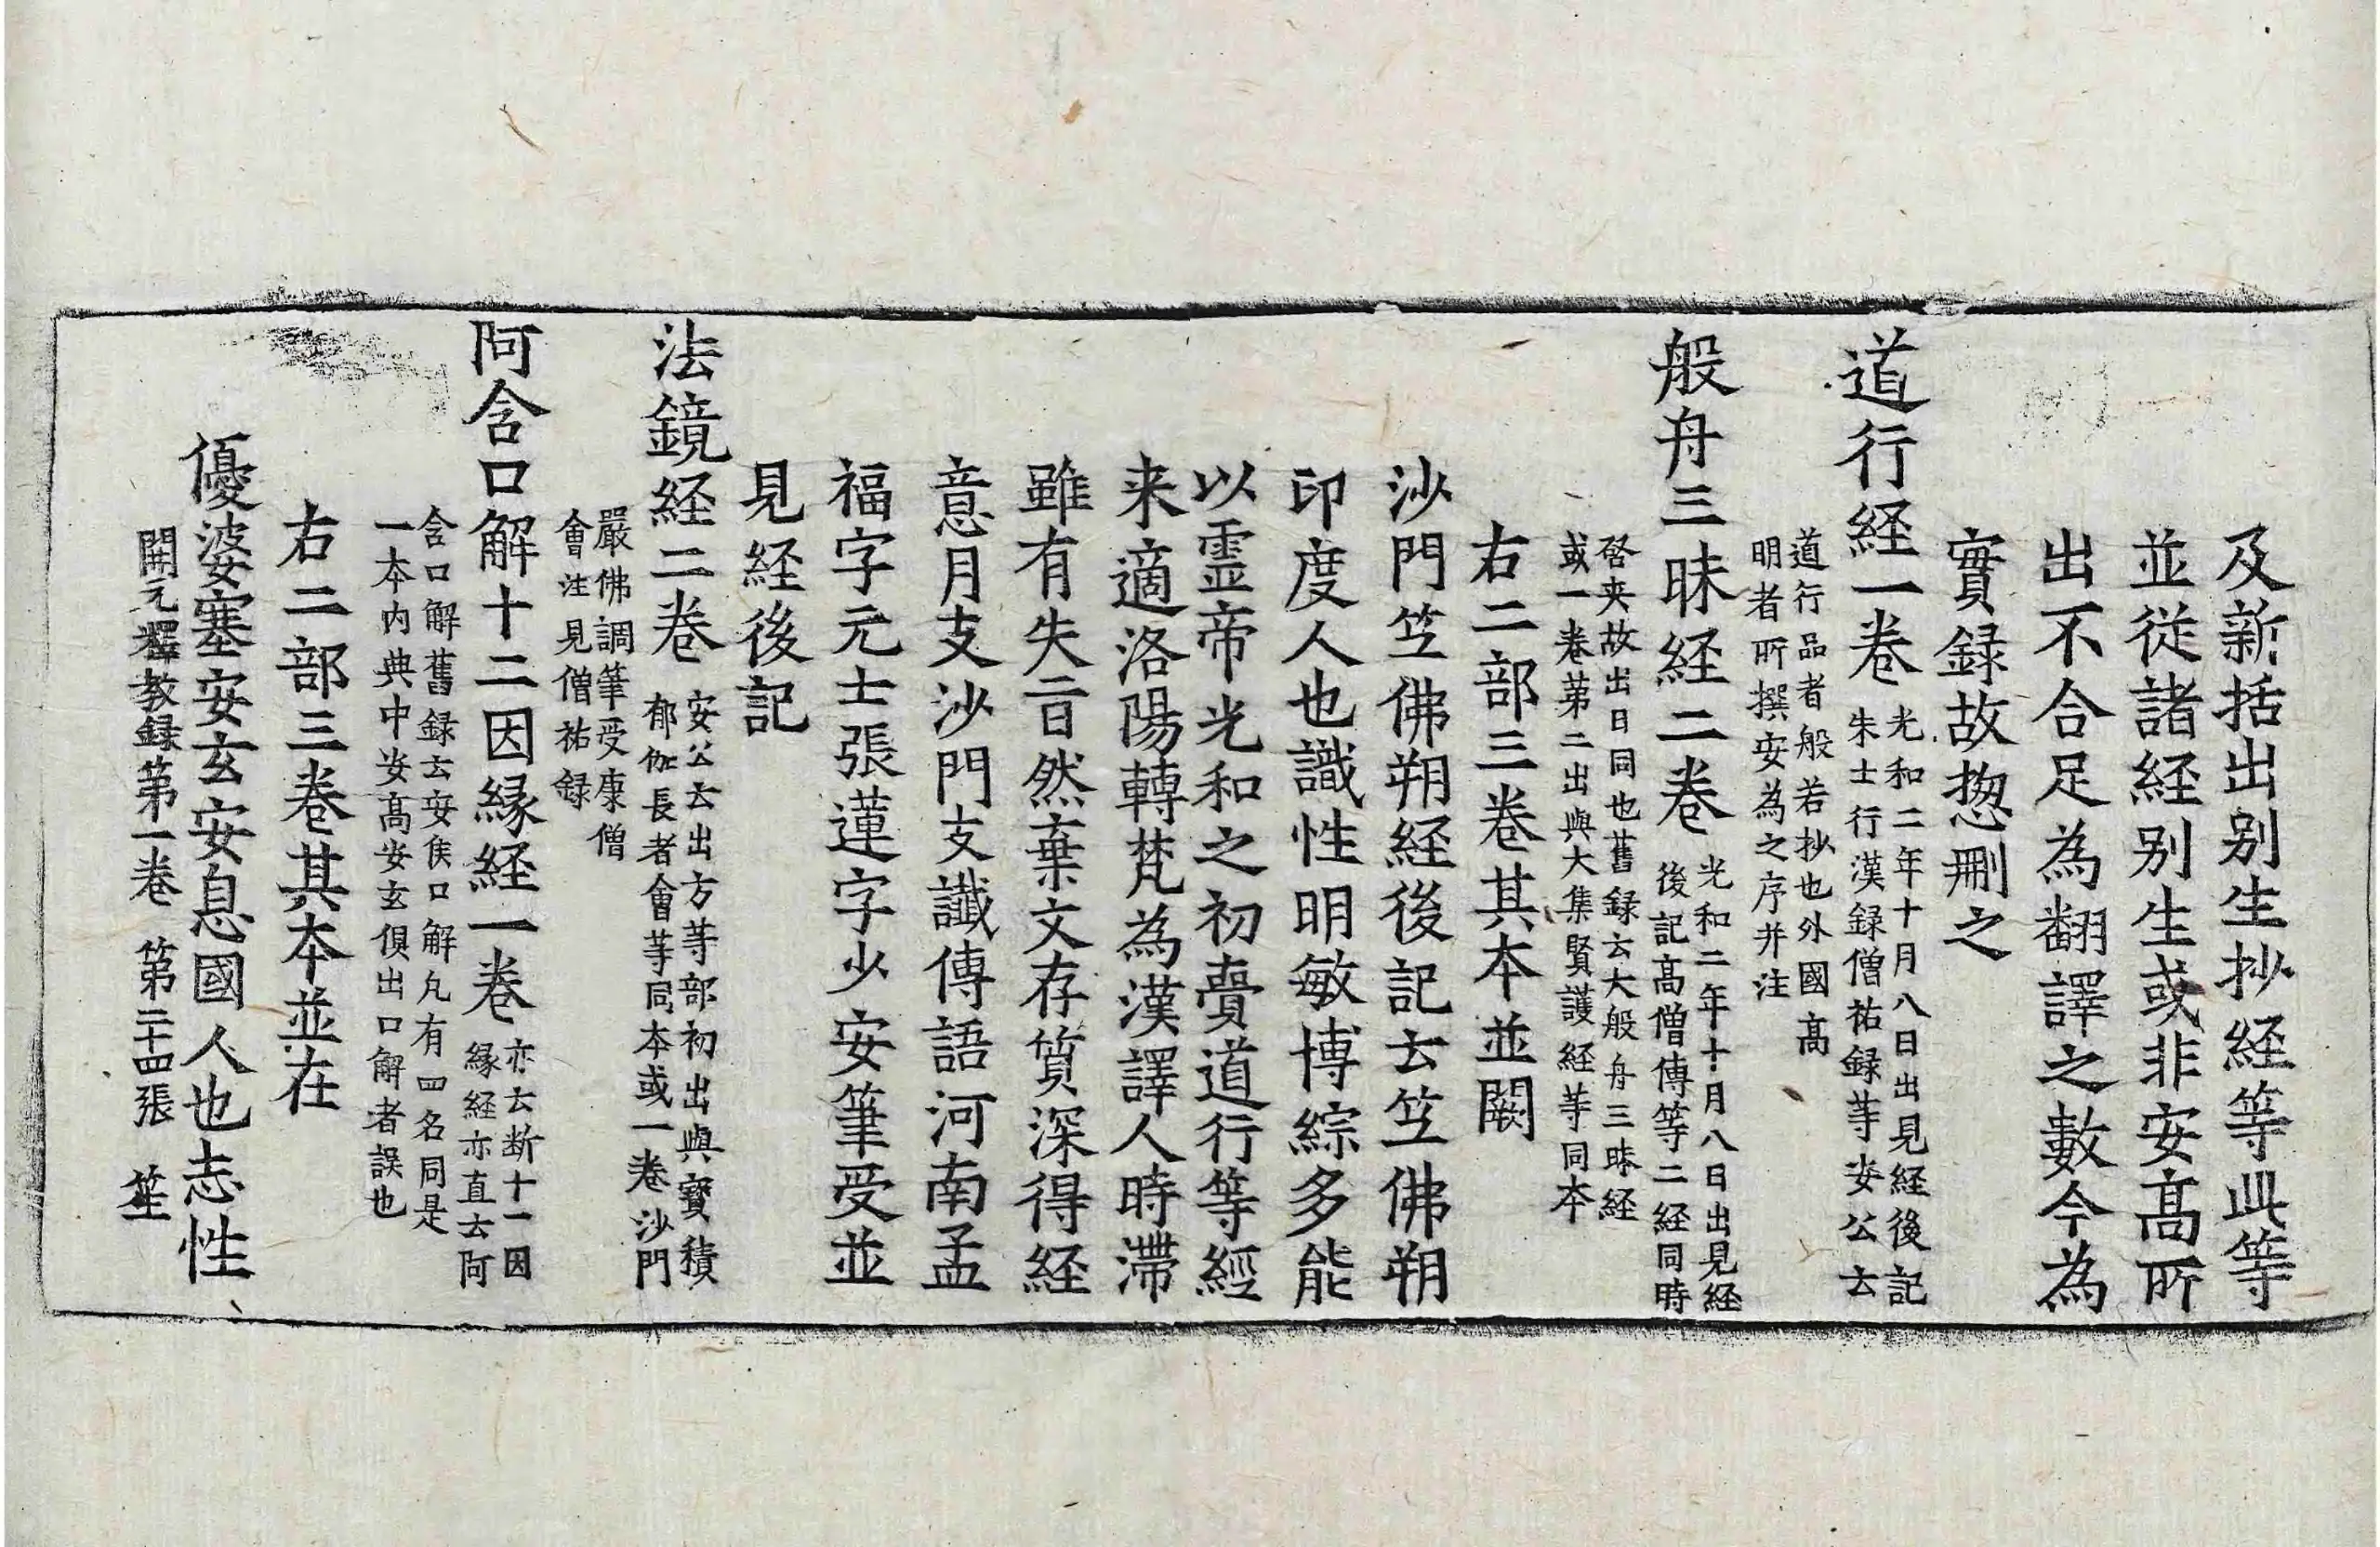 及新括出别生抄経等此等
並從諸経别生或非安髙所
出不合足為翻譯之數今為
實録故揔刪之
道行経一卷
光和二年十月八日出見経後記
朱士行漢録僧祐録等安公云
道行品者般若抄也外國髙
明者所撰安為之序并注
般舟三昧経二卷
光和二年十月八日出見経
後記髙僧傳等二経同時
啓夾故出日同也舊録云大般舟三昧経
或一卷苐二出與大集賢護経等同本
右二部三卷其本並闕
沙門笁佛朔経後記云笁佛朔
印度人也識性明敏博綜多能
以霊帝光和之初賷道行等經
来適洛陽轉梵為漢譯人時滯
雖有失旨然棄文存質深得経
意月支沙門支讖傳語河南孟
福字元士張蓮字少安筆受並
見経後記
法鏡経二卷
安公云出方等部初出與寳積
郁伽長者會等同本或一卷沙門
嚴佛調筆受康僧
會注見僧祐録
阿含口解十二因縁経一卷
亦云断十二因
縁経亦直云阿
含口解舊録云安侯口解凢有四名同是
一本内典中安髙安玄俱出口解者誤也
右二部三卷其本並在
優婆塞安玄安息國人也志性
開元釋教録第一卷 第二十四張 笙